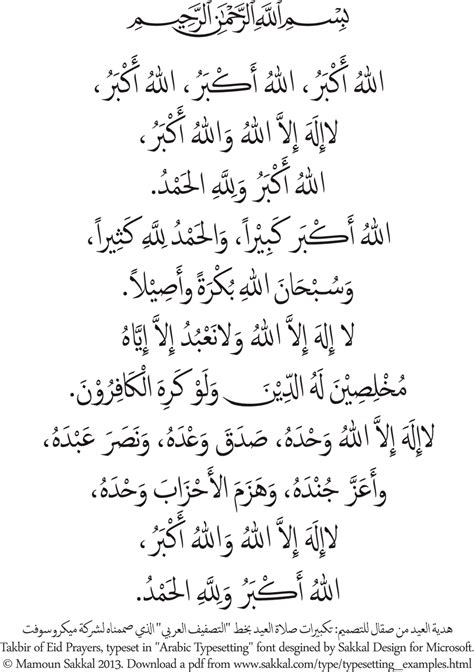 بِسْمِ اللَّهِ الرَّحْمَٰنِ الرَّحِيمِ
اللهُ أَكْبَرُ، اللهُ أَكْبَرُ، اللهُ أَكْبَرُ،
لاإِلَهَ إِلاَّ اللهُ وَاللهُ أَكْبَرُ،
اللهُ أَكْبَرُ وَلِلَّهِ الحَمْدُ.
اللهُ أَكْبَر كَبِيْراً، وَالحَمْدُ لِلَّهِ كَثِيْراً،
وَسُبْحَانَ اللهِ بُكْرَةً وأَصِيْلاً.
لا إِلهَ إِلاَّ اللهُ وَلانَعْبُدُ إِلاَّ إِيَّاهُ
مُخْلِصِيْنَ لَهُ الدِّيْنَ وَلَوْ كَرِهَ الْكَافِرُوْنَ.
لاإِلَهَ إِلاَّ اللهُ وَحْدَهُ، صَدَقَ وَعْدَهُ، وَنَصَرَ عَبْدَهُ،
وأَعَزَّ جُنْدَهُ، وَهَزَمَ الأَحْزَابَ وَحْدَهُ،
لاإِلَهَ إِلاَّ اللهُ وَاللهُ أَكْبَرُ،
اللهُ أَكْبَرُ وَلِلَّهِ الحَمْدُ.
هدية العيد من صقال للتصميم: تكبيرات صلاة العيد بخط "التصفيف العربي" الذي صممناه لشركة ميكروسوفت
Takbir of Eid Prayers, typeset in "Arabic Typesetting" font desgined by Sakkal Design for Microsoft
© Mamoun Sakkal 2013. Download a pdf from www.sakkal.com/type/typesetting_examples.html